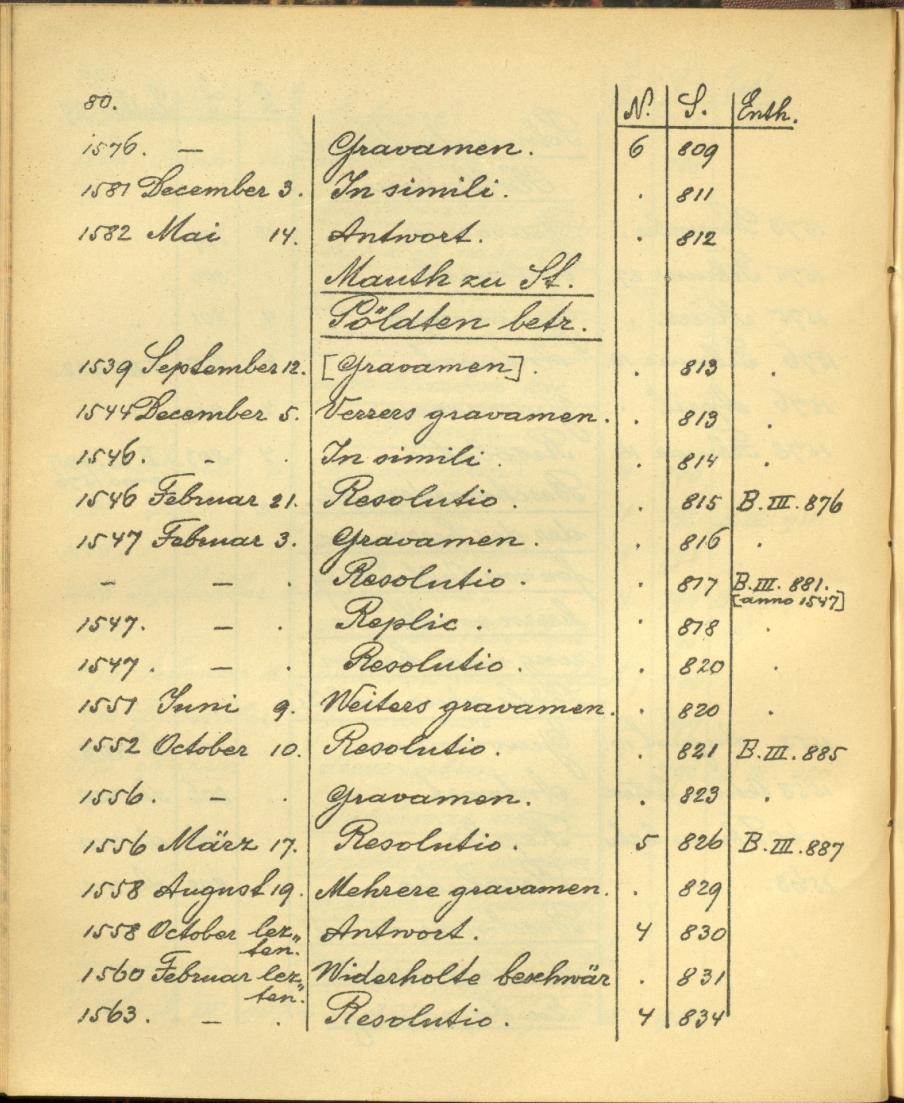 80. N. S. Enth.
1576. — Gravamen. 6 809
1581 December 3. In simili. . 811
1582 Mai 14. Antwort. . 812
Mauth zu St.
Pöldten betr.
1539 September 12. [Gravamen]. . 813 .
1544 December 5. Verrers gravamen. . 813 .
1546. - . In simili. . 814 .
1546 Februar 21. Resolutio. . 815 B. III. 876
1547 Februar 3. Gravamen. . 816 .
- — . Resolutio. . 817 B. III. 881.
[anno 1547]
1547. — . Replic. . 818 .
1547. — . Resolutio. . 820 .
1551 Juni 9. Weiters gravamen. . 820 .
1552 October 10. Resolutio. . 821 B. III. 885
1556. - . Gravamen. . 823 .
1556 März 17. Resolutio. 5 826 B. III. 887
1558 August 19. Mehrere gravamen. . 829
1558 October lez„ Antwort. 4 830
ten.
1560 Februar lez„ Widerholte beschwär . 831
ten.
1563. — . Resolutio. 4 834